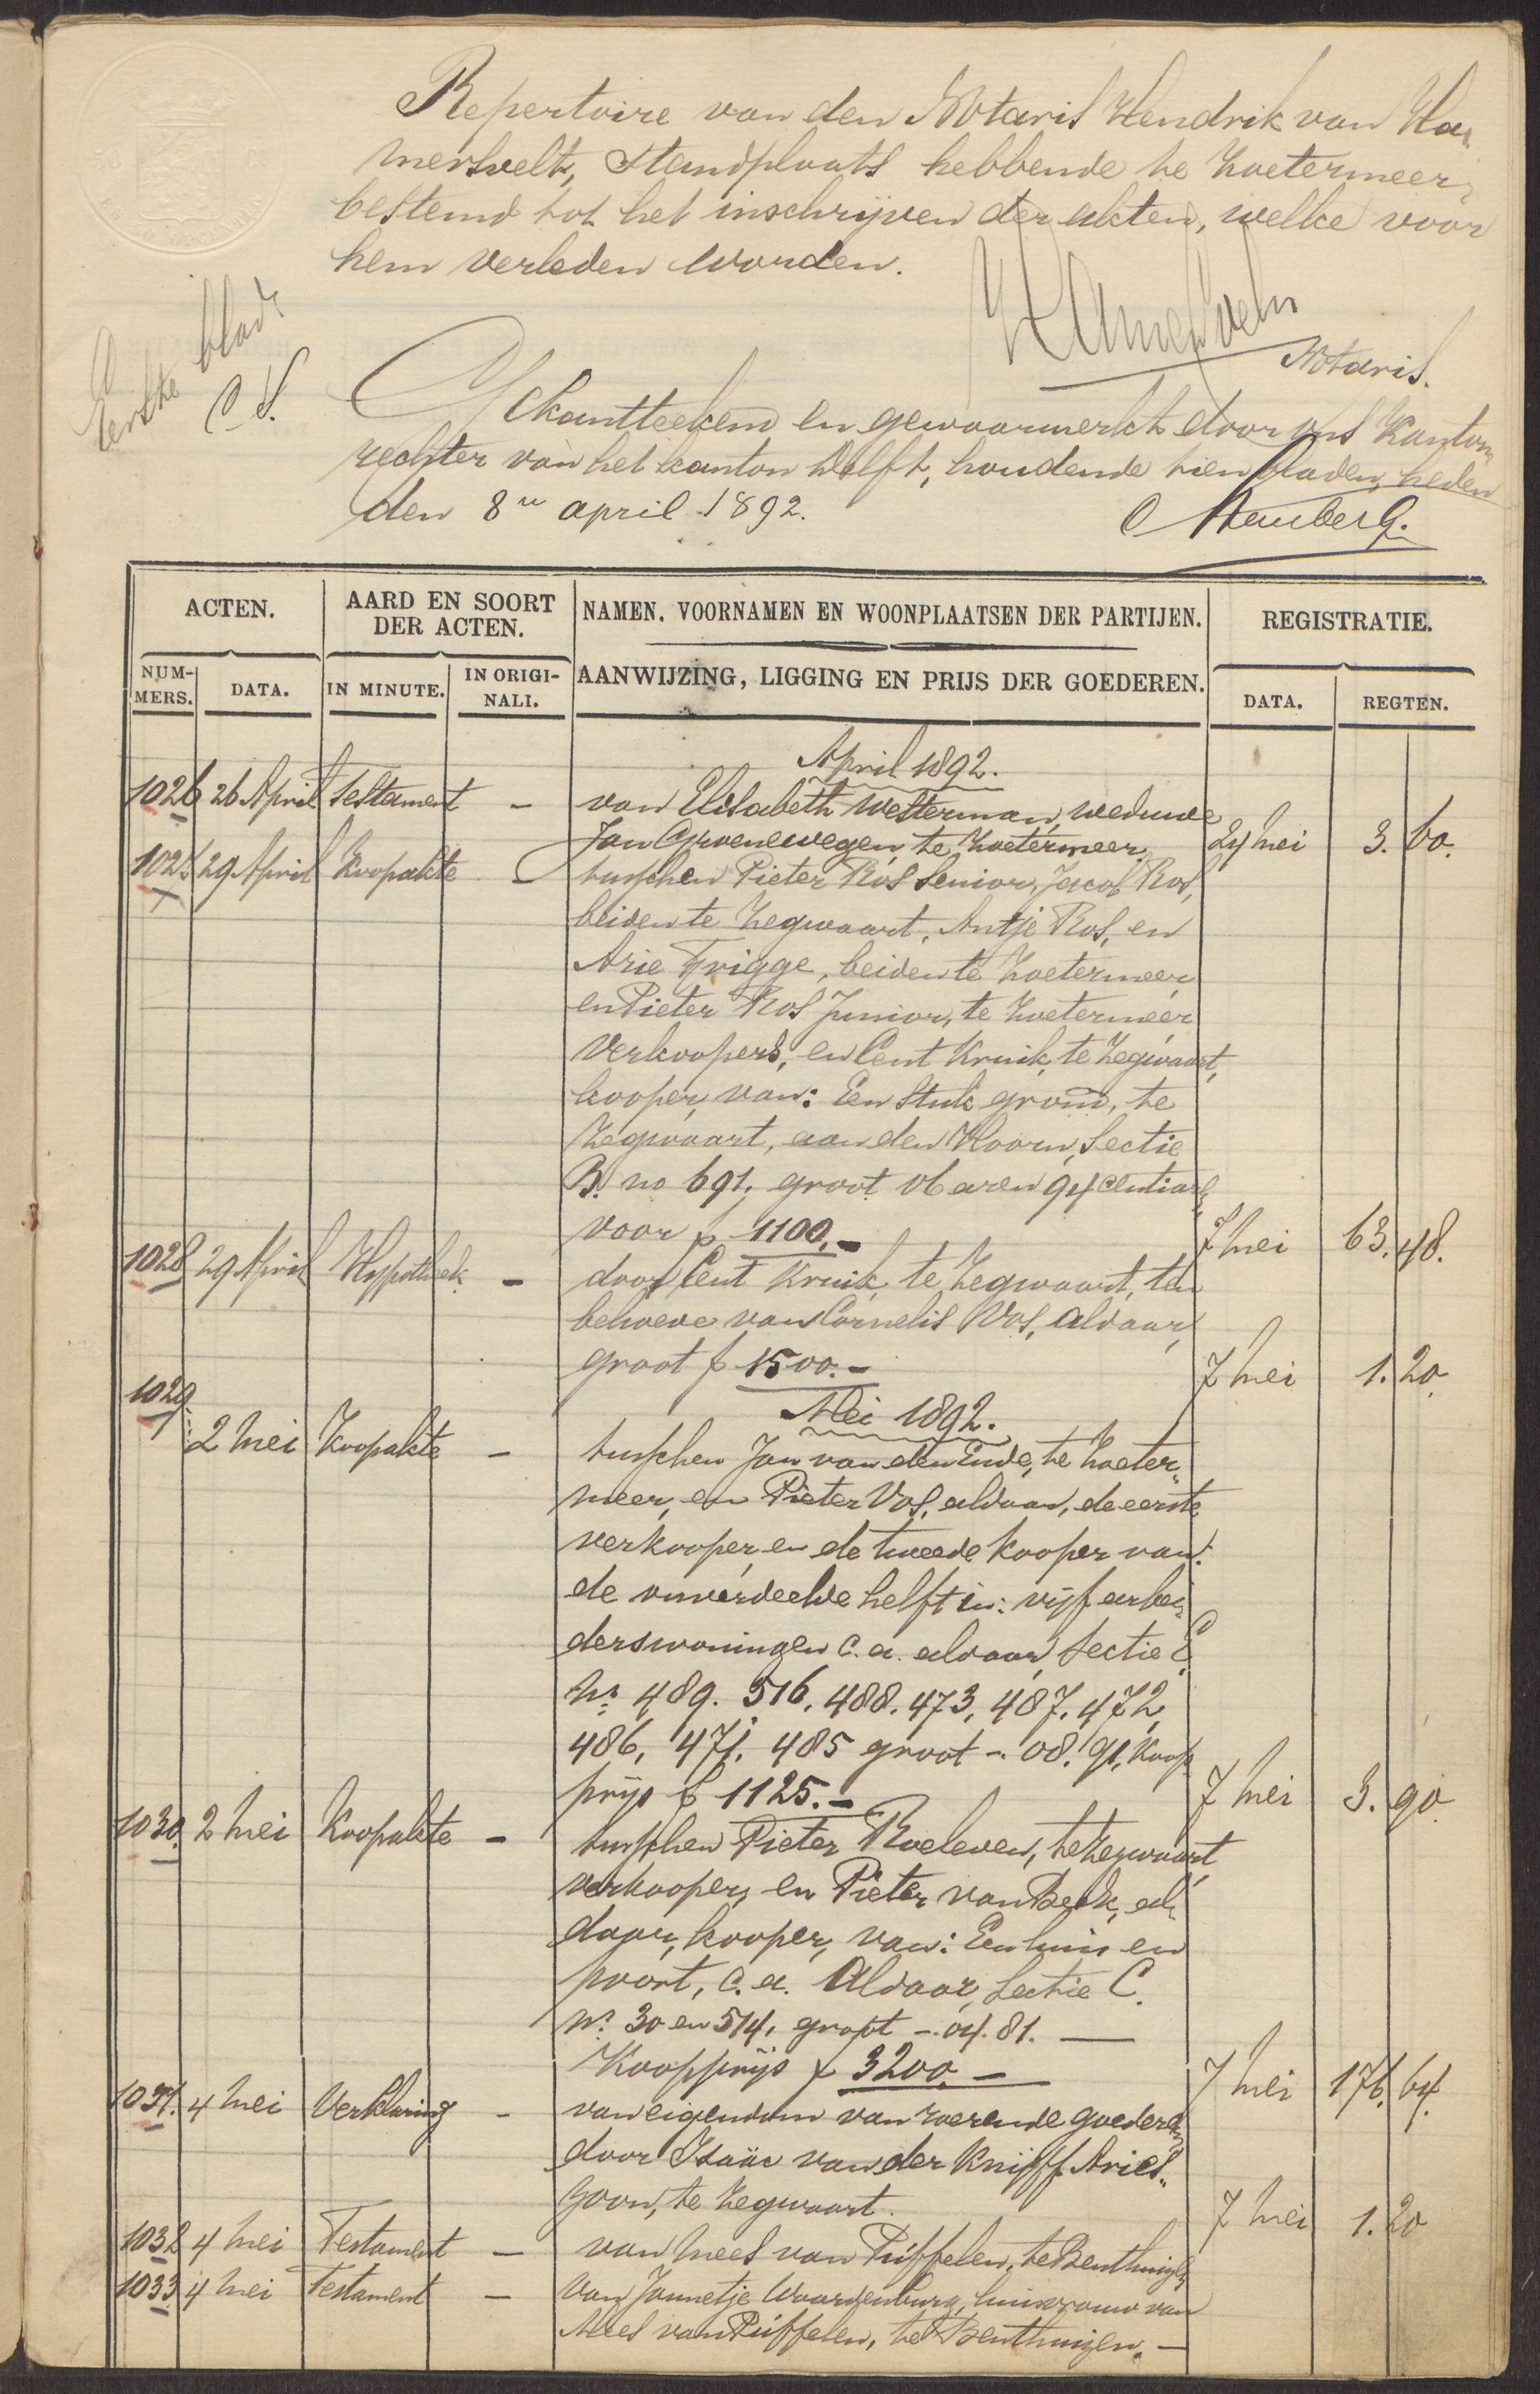 Repertoire van den Notaris Hendrik van Ha„
mersvelt, Standplaats hebbende te Zoetermeer,
bestemd tot het inschrijven der akten, welke voor
hem verleden worden.
Eerste blad
Notaris.
Gekantteekend en gewaarmerkt door ons Kanton„
rechter van het kanton Delft, houdende tien bladen, heden
den 8en april 1892.
ACTEN.
AARD EN SOORT
DER ACTEN.
NAMEN, VOORNAMEN EN WOONPLAATSEN DER PARTIJEN.
REGISTRATIE.
NUM-
MERS.
DATA.
IN MINUTE.
IN ORIGI-
NALI.
AANWIJZING, LIGGING EN PRIJS DER GOEDEREN.
DATA.
REGTEN.
April 1892.
1026 26 April Testament – van Elisabeth Westerman, weduwe
Jan Groenewegen, te Zoetermeer. 24 Mei 3. 60.
29 April Koopakte – tusschen Pieter Ros Senior, Jacob Ros,
beiden te Zegwaart, Antje Ros, en
Arie Trigge, beiden te Zoetermeer
en Pieter Ros Junior, te Zoetermeer
Verkoopers, en Cent Kruik, te Zegwaart,
kooper, van: Een Stuk grond, te
Zegwaart, aan den Hoorn, Sectie
B. no 691, groot 06 aren 94 centiare,
voor f 1100.– 7 Mei 63. 48.
1028 29 April Hypotheek – door Cent Kruik, te Zegwaart, ten
behoeve van Cornelis Vos, aldaar,
groot f 1500.– 7 Mei 1. 20.
Mei 1892.
1029. 2 Mei Koopakte – tusschen Jan van den Ende, te Zoeter„
meer, en Pieter Vos, aldaar, de eerste
verkooper, en de tweede kooper van:
de onverdeelde helft in: vijf arbei„
derswoningen c.a. aldaar, Sectie C
No. 489. 516. 488. 473, 487. 472,
486, 471. 485 groot –. 08. 91, Koop
prijs f 1125.– 7 Mei 3. 90
1030. 2 Mei Koopakte – tusschen Pieter Roeleven, te Zegwaart,
verkooper, en Pieter van Beek, al„
daar, kooper, van: Een huis en
poort, c.a. Aldaar, Sectie C.
No. 30 en 514, groot –. 04. 81. —
Koopprijs f 3200.– 7 Mei 176. 64.
1031. 4 Mei Verklaring – van eigendom van roerende goederen
door Isaäc van der Knijff Aries„
zoon, te Zegwaart. 7 Mei 1. 20
1032 4 Mei Testament – van Mees van Puffelen, te Benthuizen,
1033 4 Mei Testament – van Jannetje Waardenburg, huisvrouw van
Mees van Puffelen, te Benthuizen. –